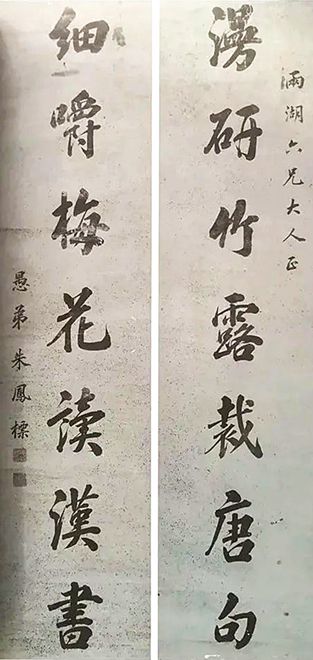 雨湖六兄大人正
漫研竹露裁唐句
細嚼梅花讀漢書
愚弟朱鳳標